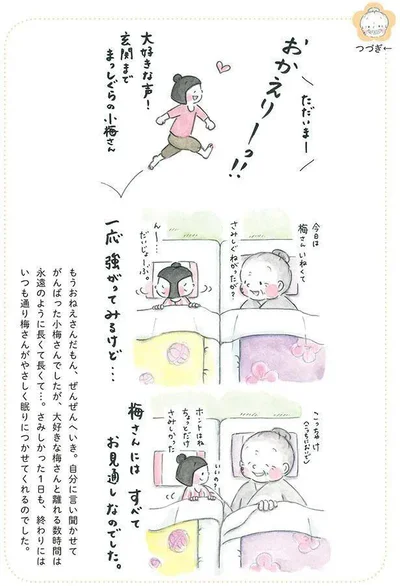 つづき←
ただいまー
おかえりーっ!!
大好きな声!
玄関まで
まっしぐらの小梅さん
今日は
梅さんいねくて
さみしぐねがったが?
んー…
だいじょーぶ。
一応 強がってみるけど…
こっちゃけ
(こっちにおいで)
いいの?
ホントはね
ちょっとだけ
さみしかった
梅さんには すべて
お見通しなのでした。
もうおねえさんだもん、ぜんぜんへいき。自分に言い聞かせて
がんばった小梅さんでしたが、大好きな梅さんと離れる数時間は
永遠のように長くて長くて…。さみしかった1日も、終わりには
いつも通り梅さんがやさしく眠りにつかせてくれるのでした。